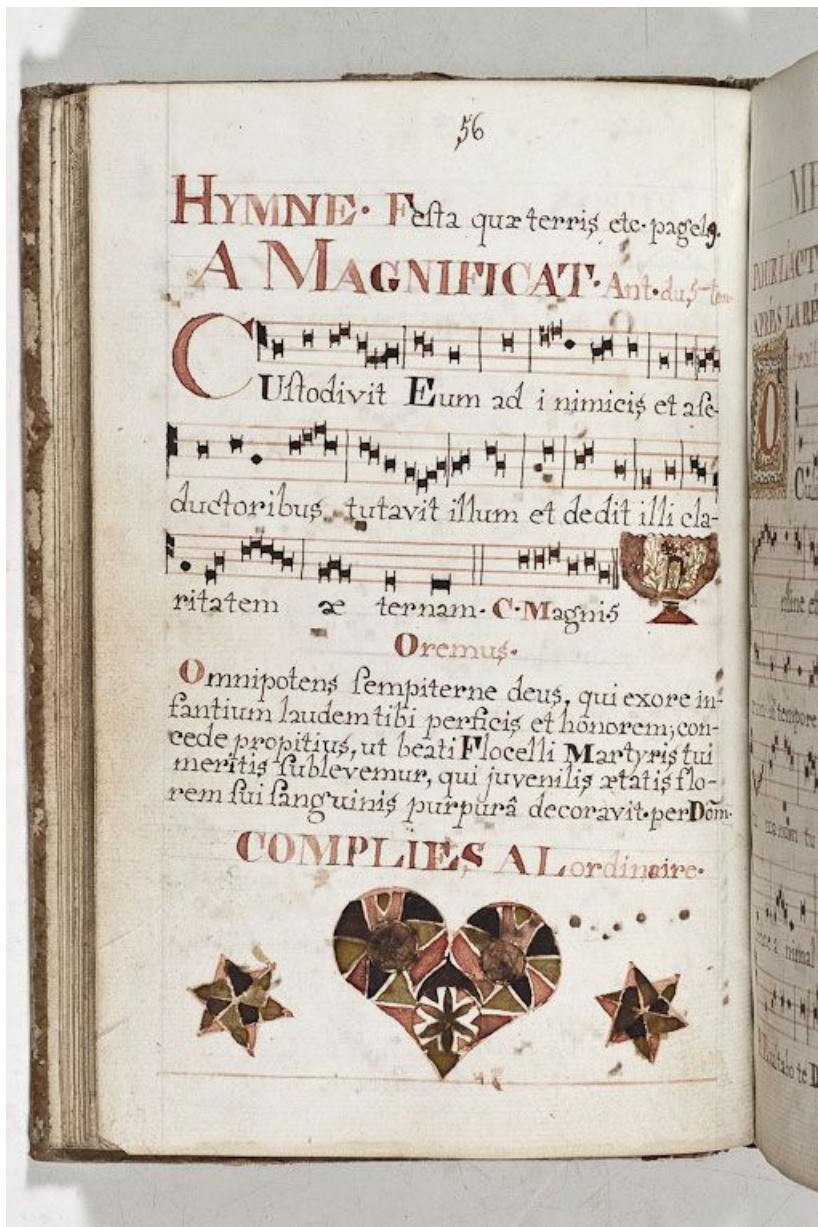 56
HYMNE. Festa quæ terris etc. page 19.
A MAGNIFICAT. Ant. du 5 ton
CUſtodivit Eum ad i nimicis et aſe-
ductoribus tutavit illum et dedit illi cla-
ritatem æ ternam. C. Magnis
Oremus.
Omnipotens ſempiterne deus, qui exore in-
fantium laudem tibi perficis et honorem; con-
cede propitius, ut beati Flocelli Martyris tui
meritis ſublevemur, qui juvenilis ætatis flo-
rem ſui ſanguinis purpurâ decoravit. per Dom̄.
COMPLIES A Lordinaire.
ME
POUR L'ACT
APRÈS LA RÉ
O